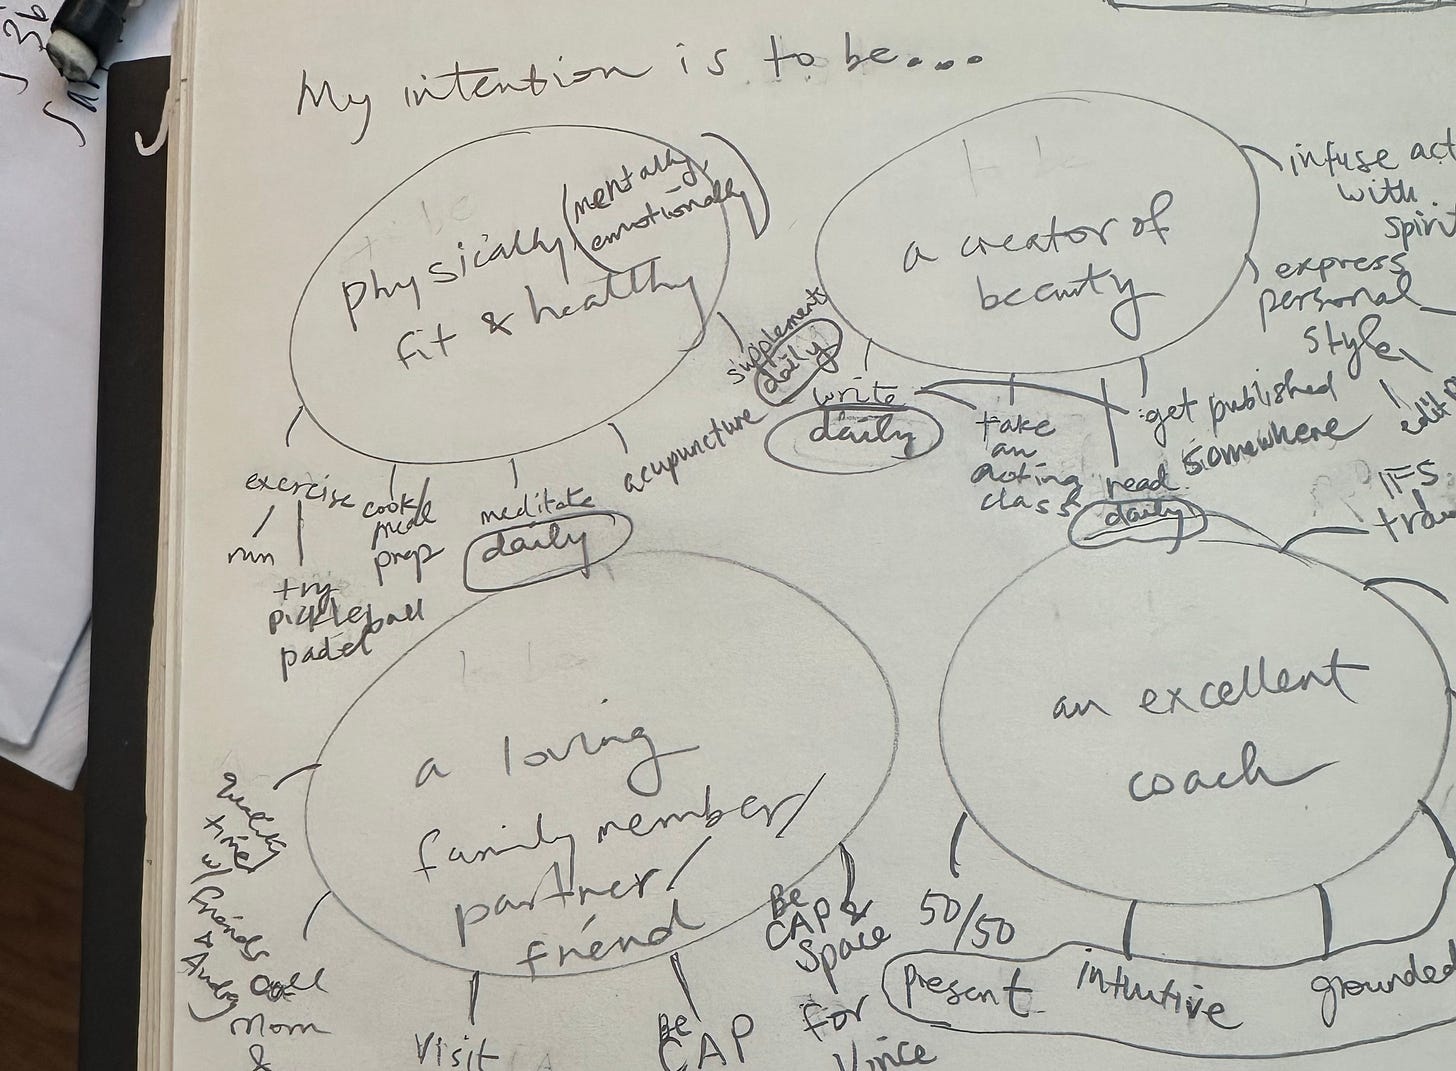 My intention is to be...
physically (mentally,
emotionally)
fit & healthy
exercise
run
try
pickleball
padel
cook/
meal
prep
meditate
daily
acupuncture
supplements
daily
a creator of
beauty
write
daily
take
an
acting
class
read
daily
get published
somewhere
infuse act
with
spirit
express
personal
style
edit
a loving
family member/
partner/
friend
quality
time
w/
friends
+
Andy
call
Mom
&
visit
Be
CAP
Be
CAP &
Space
for
Vince
an excellent
coach
IFS
tra
50/50
present
intuitive
grounded